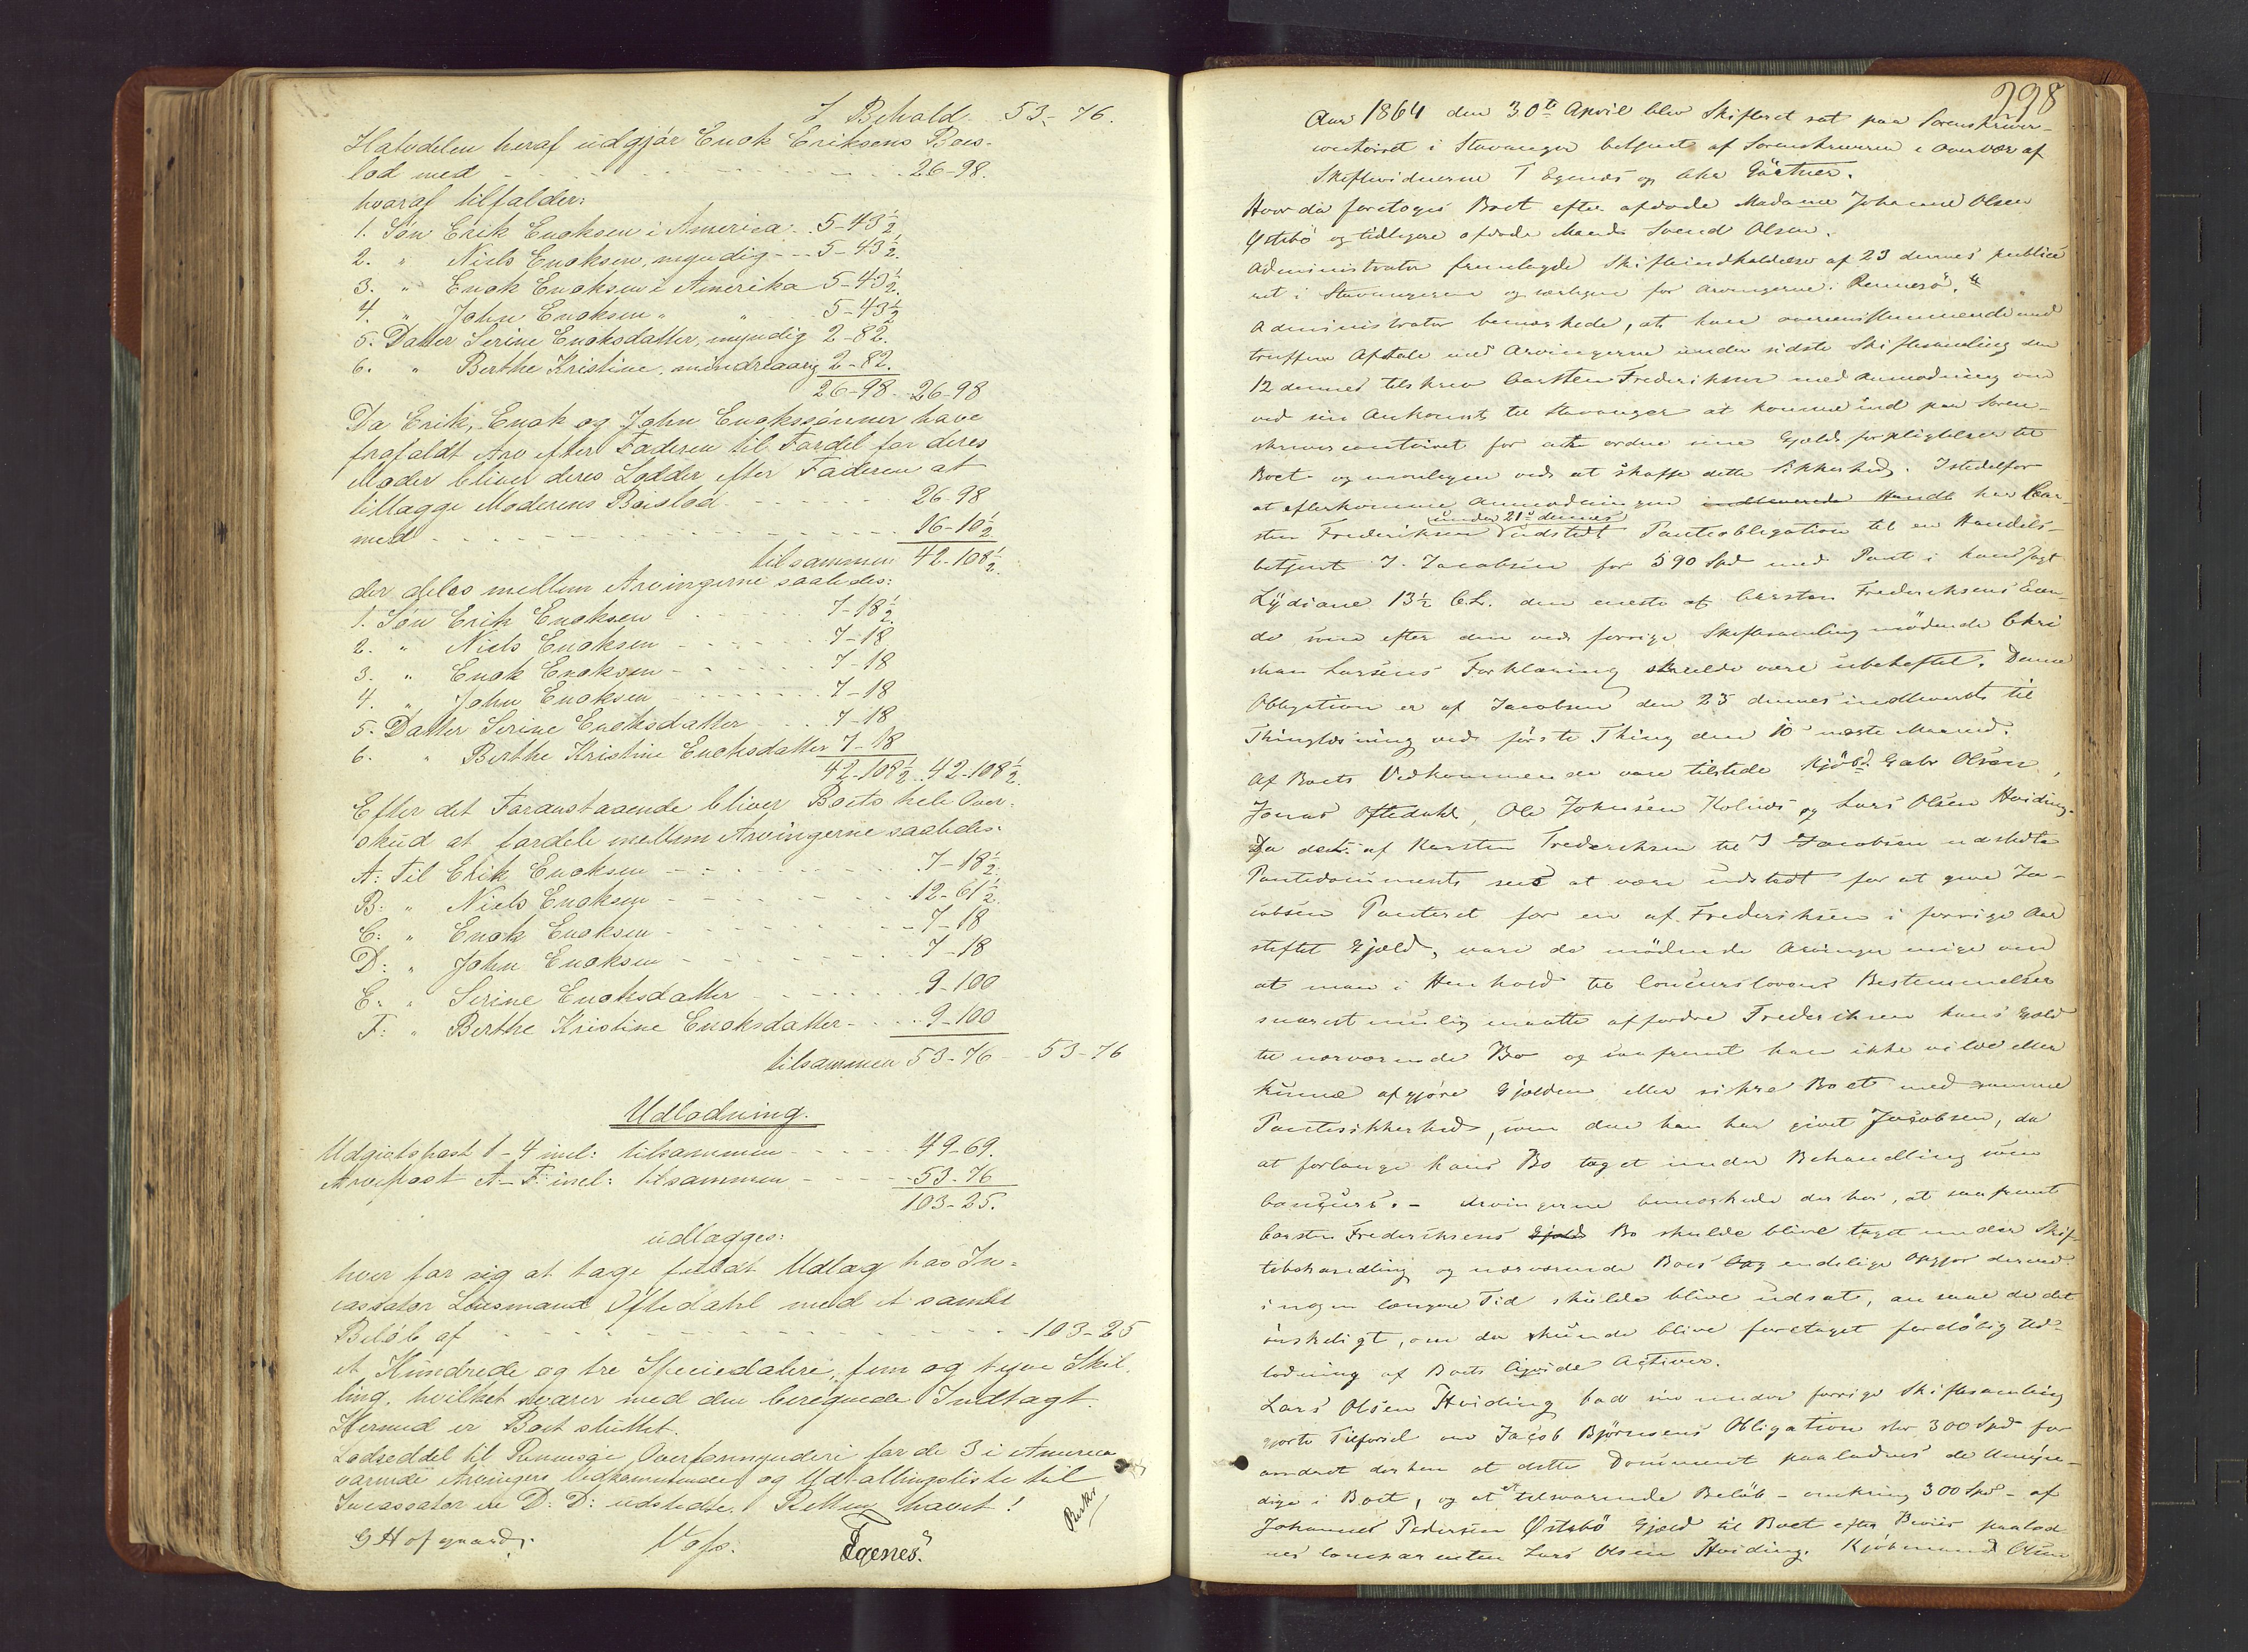 I Behold 53-76.
Halvdelen heraf udgjør Enok Eriksens Boes-
lod med 26-98.
hvoraf tilfalder:
1. Søn Erik Enoksen i America 5-43½
2. " Niels Enoksen, myndig 5-43½.
3. " Enok Enoksen i Amerika 5-43½.
4. " John Enoksen " " 5-43½
5. Datter Serine Enoksdatter, myndig 2-82.
6. " Berthe Kristine, mindreaarig 2-82.
26-98 26-98
Da Erik, Enok og John Enokssønner have
frafaldt Arv efter Faderen til Fordel for deres
Moder bliver deres Lodder efter Faderen at
tillægge Moderens Boeslod 26-98
med 16-10½
tilsammen 42-108½.
der deles mellem Arvingerne saaledes:
1. Søn Erik Enoksen 7-18½
2. " Niels Enoksen 7-18
3. " Enok Enoksen 7-18
4. " John Enoksen 7-18
5. Datter Serine Enoksdatter 7-18
6. " Berthe Kristine Enoksdatter 7-18
42-108½ 42-108½.
Efter det Foranstaaende bliver Boets hele Over-
skud at fordele mellem Arvingerne saaledes:
A: Til Erik Enoksen 7-18½.
B: " Niels Enoksen 12-61½.
C: " Enok Enoksen 7-18
D: " John Enoksen 7-18
E: " Serine Enoksdatter 9-100
F: " Berthe Kristine Enoksdatter 9-100
tilsammen 53-76 53-76
Udlodning.
Udgiftspost 1-4 incl: tilsammen 49-69.
Arvepost A-F incl: tilsammen 53-76
103-25.
udlægges:
hver for sig at tage fuldt Udlæg hos In-
cassator Lensmand Oftedahl med et samlet
Beløb af 103-25
et Hundrede og tre Speciedalere, fem og tyve Skil-
ling, hvilket svarer med den beregnede Indtægt.
Hermed er Boet sluttet.
Lodseddel til Rennesø Overformynderi for de 3 i America
værende Arvingers Vedkommende og Udbetalingsliste til
Incassator er D: D: udstedte. Retten hævet!
G Hofgaard. Voss. Egenes.
298
Aar 1864 den 30te April blev Skifteret sat paa Sorenskriver-
contoiret i Stavanger betjent af Sorenskriveren i Overvær af
Skiftevidnerne T Egenes og Gärtner.
Hvor da foretoges Boet efter afdøde Madame Johanne Olsen
Østebø og tidligere afdøde Mand Svend Olsen.
Administrator fremlagde Skifteindkaldelse af 23 dennes publice
ret i Stavangeren og særligen for Arvingerne i Rennesø.
Administrator bemærkede, at han overeensstemmende med
truffen Aftale med Arvingerne under sidste Skiftesamling den
12 dennes tilskrev Carsten Frederiksen med Anmodning om
ved sin Ankomst til Stavanger at komme ind paa Soren-
skrivercontoiret for at ordne sine Gjelds forpligtelser til
Boet og navnligen ved at skaffe dette Sikkerhed. Istedetfor
at efterkomme Anmodningen har Car-
under 21de dennes
sten Frederiksen udstedt Panteobligation til en Handels-
betjent J. Jacobsen for 590 Spd med Pant i hans Jagt
Lydiane 13½ C.L. den eneste af Carsten Frederiksens Eien-
de som efter den ved forrige Skiftesamling mødende Chri
stian Larsens Forklaring skulde være ubeheftet. Denne
Obligation er af Jacobsen den 25 dennes indleveret til
Thinglæsning ved første Thing den 10 næste Maaned.
Af Boets Vedkommende vare tilstede Kjøbd Gabr Olsen,
Jonas Oftedahl, Ole Johnsen Kolnes og Lars Olsen Hviding.
Da det af Karsten Frederiksen til J Jacobsen udstedte
Pantedocument sees at være udstedt for at give Ja-
cobsen Panteret for en af Frederiksen i forrige Aar
stiftet Gjeld, vare de mødende Arvinger enige om
at man i Henhold til Concurslovens Bestemmelser
snarest mulig maatte affordre Frederiksen hans Gjeld
til nærværende Bo og saafremt han ikke vilde eller
kunne afgjøre Gjelden eller sikre Boet med samme
Pantesikkerhed, som den han har givet Jacobsen, da
at forlange hans Bo taget under Behandling som
Concurs. - Arvingerne bemærkede derhos, at saafremt
Carsten Frederiksens Gjeld Bo skulde blive taget under Skif-
tebehandling og nærværende Boes endelige Opgjør derved
i nogen længere Tid skulde blive udsat, ansaae de det
ønskeligt, om der kunde blive foretaget foreløbig Ud-
lodning af Boets liqvide Activer.
Lars Olsen Hviding bad sin under forrige Skiftesamling
gjorte Tilførsel om Jacob Bjørnsens Obligation stor 300 Spd for
andret derhen at dette Document paalodnes de Umyn-
dige i Boet, og at et tilsvarende Beløb - omkring 300 Spd - af
Johannes Pedersen Østebø Gjeld til Boet efter Beviis paalod
nes Comparenten Lars Olsen Hviding. Kjøbmand Olsen